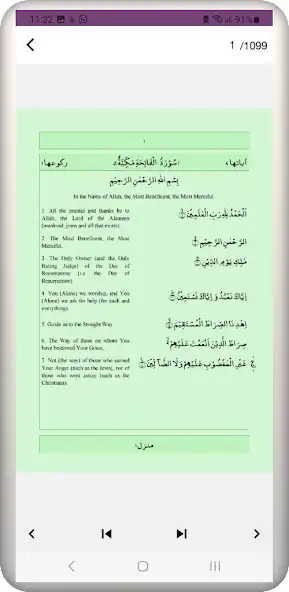 11:22
91%
1 /1099
١
ركوعها١ سُوْرَةُ الْفَاتِحَةِ مَكِّيَّةٌ٥ آياتها٧
بِسْمِ اللهِ الرَّحْمٰنِ الرَّحِيْمِ
In the Name of Allah, the Most Beneficent, the Most Merciful.
1. All the praises and thanks be to
Allah, the Lord of the Alameen
(mankind, jinns and all that exists)
اَلْحَمْدُ لِلّٰهِ رَبِّ الْعٰلَمِيْنَ
2. The Most Beneficent, the Most
Merciful.
الرَّحْمٰنِ الرَّحِيْمِ
3. The Only Owner (and the Only
Ruling Judge) of the Day of
Recompense (i.e. the Day of
Resurrection)
مٰلِكِ يَوْمِ الدِّيْنِ
4. You (Alone) we worship, and You
(Alone) we ask for help (for each and
everything)
اِيَّاكَ نَعْبُدُ وَ اِيَّاكَ نَسْتَعِيْنُ
5. Guide us to the Straight Way
اِهْدِ نَا الصِّرَاطَ الْمُسْتَقِيْمَ
6. The Way of those on whom You
have bestowed Your Grace,
صِرَاطَ الَّذِيْنَ اَنْعَمْتَ عَلَيْهِمْ
7. Not (the way) of those who earned
Your Anger (such as the Jews), nor of
those who went astray (such as the
Christians).
غَيْرِ الْمَغْضُوْبِ عَلَيْهِمْ وَلَا الضَّآلِّيْنَ
منزل١